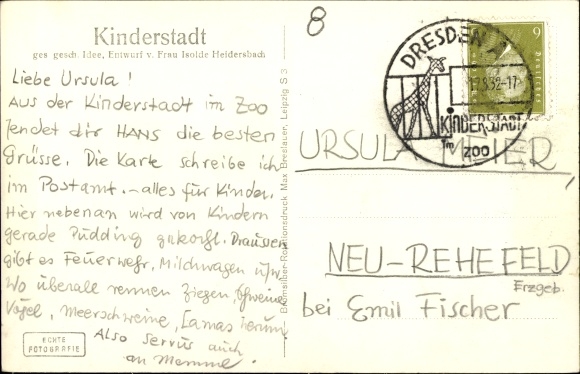 Kinderstadt
ges gesch. Idee, Entwurf v. Frau Isolde Heidersbach
8
Liebe Ursula!
Aus der Kinderstadt im Zoo
sendet dir HANS die besten
Grüsse. Die Karte schreibe ich
im Postamt. – alles für Kinder.
Hier nebenan wird von Kindern
gerade Pudding gekocht. Draussen
gibt es Feuerwehr, Milchwagen u/w.
Wo überall rennen Ziegen, Schweine
Vögel, Meerschweine, Lamas herum.
Also Servus auch
an Mamme.
ECHTE
FOTOGRAFIE
Bromsilber-Rotationsdruck Max Breslauer, Leipzig S 3
DRESDEN A
8.32-17
KINDERSTADT
Im ZOO
6
URSULA MEIER,
NEU-REHEFELD
Erzgeb.
bei Emil Fischer